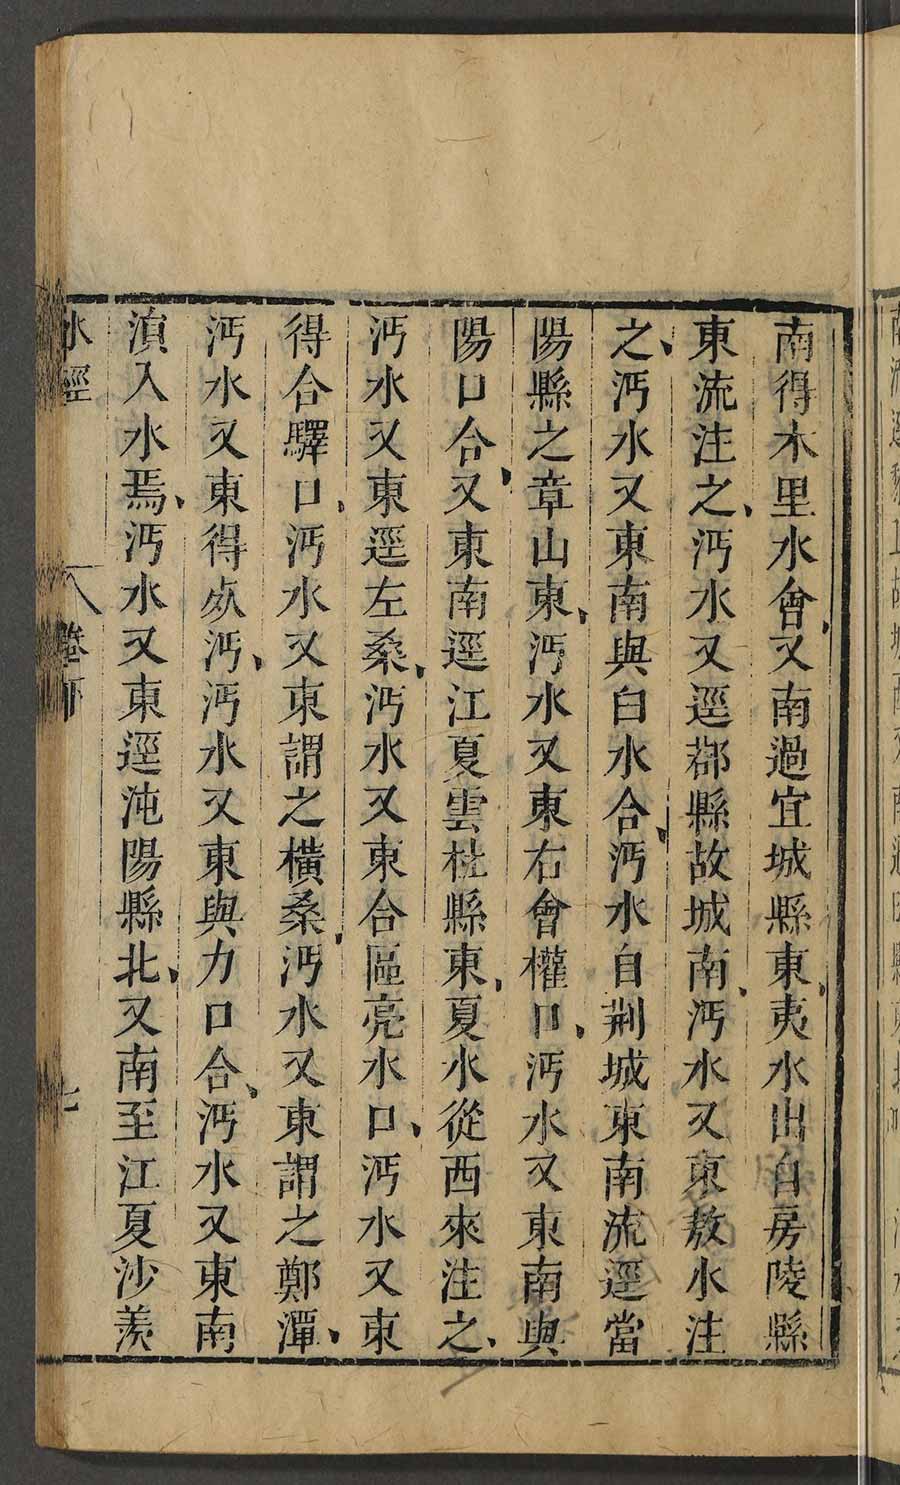 南得木里水會又南過宜城縣東夷水出自房陵縣
東流注之沔水又逕鄀縣故城南沔水又東敖水注
之沔水又東南與白水合沔水自荆城東南流逕當
陽縣之章山東沔水又東右會權口沔水又東南與
陽口合又東南逕江夏雲杜縣東夏水從西來注之
沔水又東逕左桑沔水又東合區亮水口沔水又東
得合驛口沔水又東謂之橫桑沔水又東謂之鄭潭
沔水又東得沔沔水又東與力口合沔水又東南
溳入水焉沔水又東逕沌陽縣北又南至江夏沙羨
水經
八
卷下
七